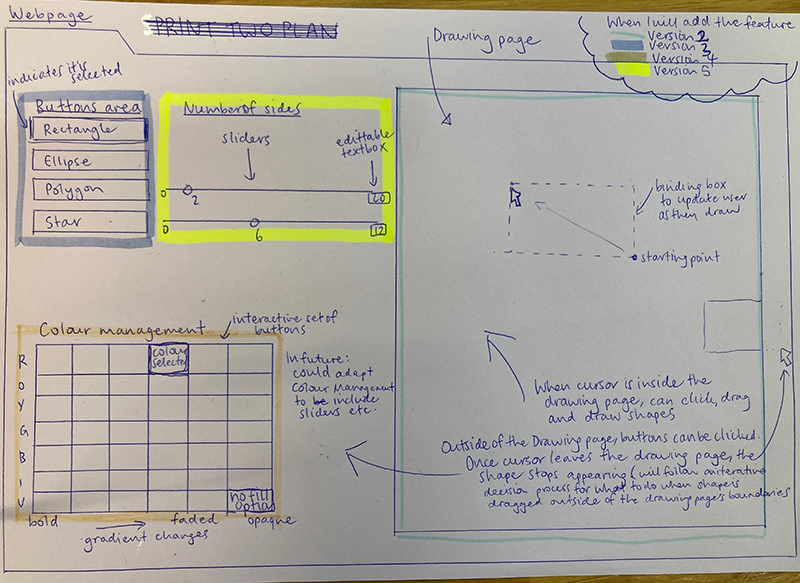 Webpage
PRINT TWO PLAN
Drawing page
When I will add the feature
Version 2
Version 3
Version 4
Version 5
indicates it's
selected
Buttons area
Rectangle
Ellipse
Polygon
Star
Number of sides
sliders
edittable
textbox
0
2
20
0
6
12
binding box
to update user
as they draw
starting point
Colour management
interactive set of
buttons
R
O
Y
G
B
I
V
colour
selected
no fill
option
bold
faded
opaque
gradient changes
In future:
could adapt
Colour Management
to be include
sliders etc.
When cursor is inside the
drawing page, can click, drag
and draw shapes
Outside of the Drawing page, buttons can be clicked.
Once cursor leaves the drawing page, the
shape stops appearing (will follow an iterative
decision process for what to do when shape is
dragged outside of the drawing page's boundaries